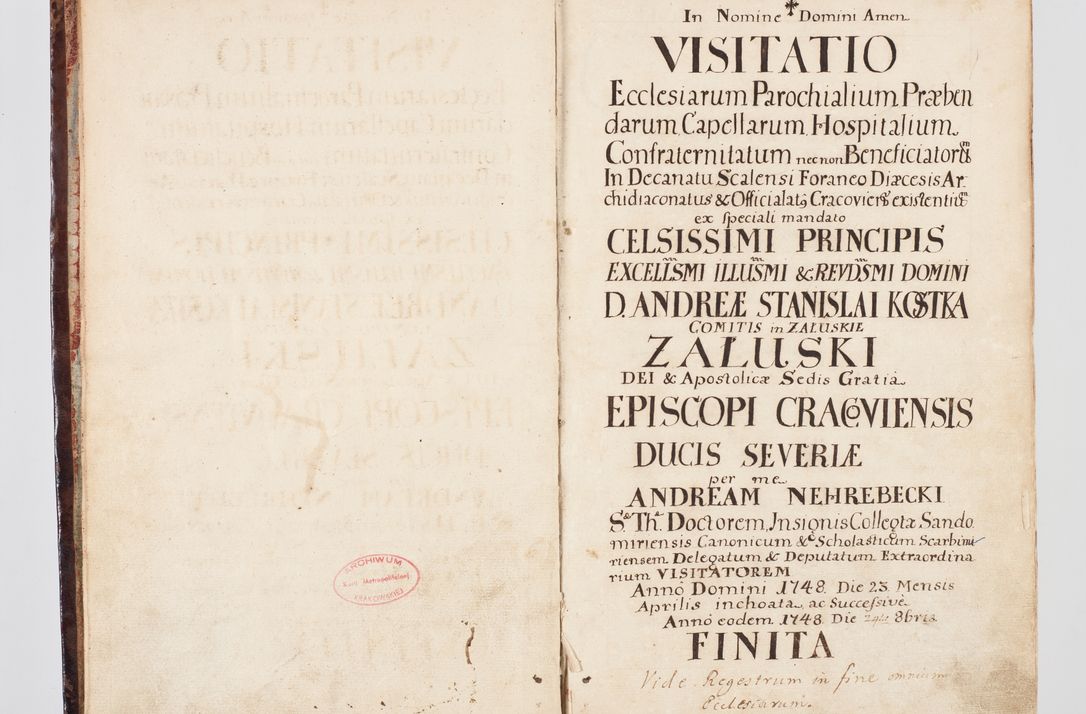 ARCHIWUM
Kurii Metropolitalnej
KRAKOWSKIEJ
In Nomine Domini Amen
VISITATIO
Ecclesiarum Parochialium Præben
darum, Capellarum, Hospitalium,
Confraternitatum necnon Beneficiatorũ
In Decanatu Scalensi Foraneo Diæcesis Ar
chidiaconatus & Officialatq Cracovien existentiũ
ex speciali mandato
CELSISSIMI PRINCIPIS
EXCELLSMI ILLUSMI & REVDSMI DOMINI
D. ANDREÆ STANISLAI KOSTKA
COMITIS in ZALUSKIE
ZAŁUSKI
DEI & Apostolicæ Sedis Gratia
EPISCOPI CRACOVIENSIS
DUCIS SEVERIÆ
per me
ANDREAM NEHREBECKI
S. Th. Doctorem, Insignis Collegtæ Sando
miriensis Canonicum & Scholasticum Scarbimi
riensem Delegatum & Deputatum Extraordina
rium VISITATOREM
Anno Domini 1748. Die 23. Mensis
Aprilis inchoata, ac Successive
Anno eodem 1748. Die 8bris
FINITA
Vide Regestrum in fine omnium
Ecclesiarum.